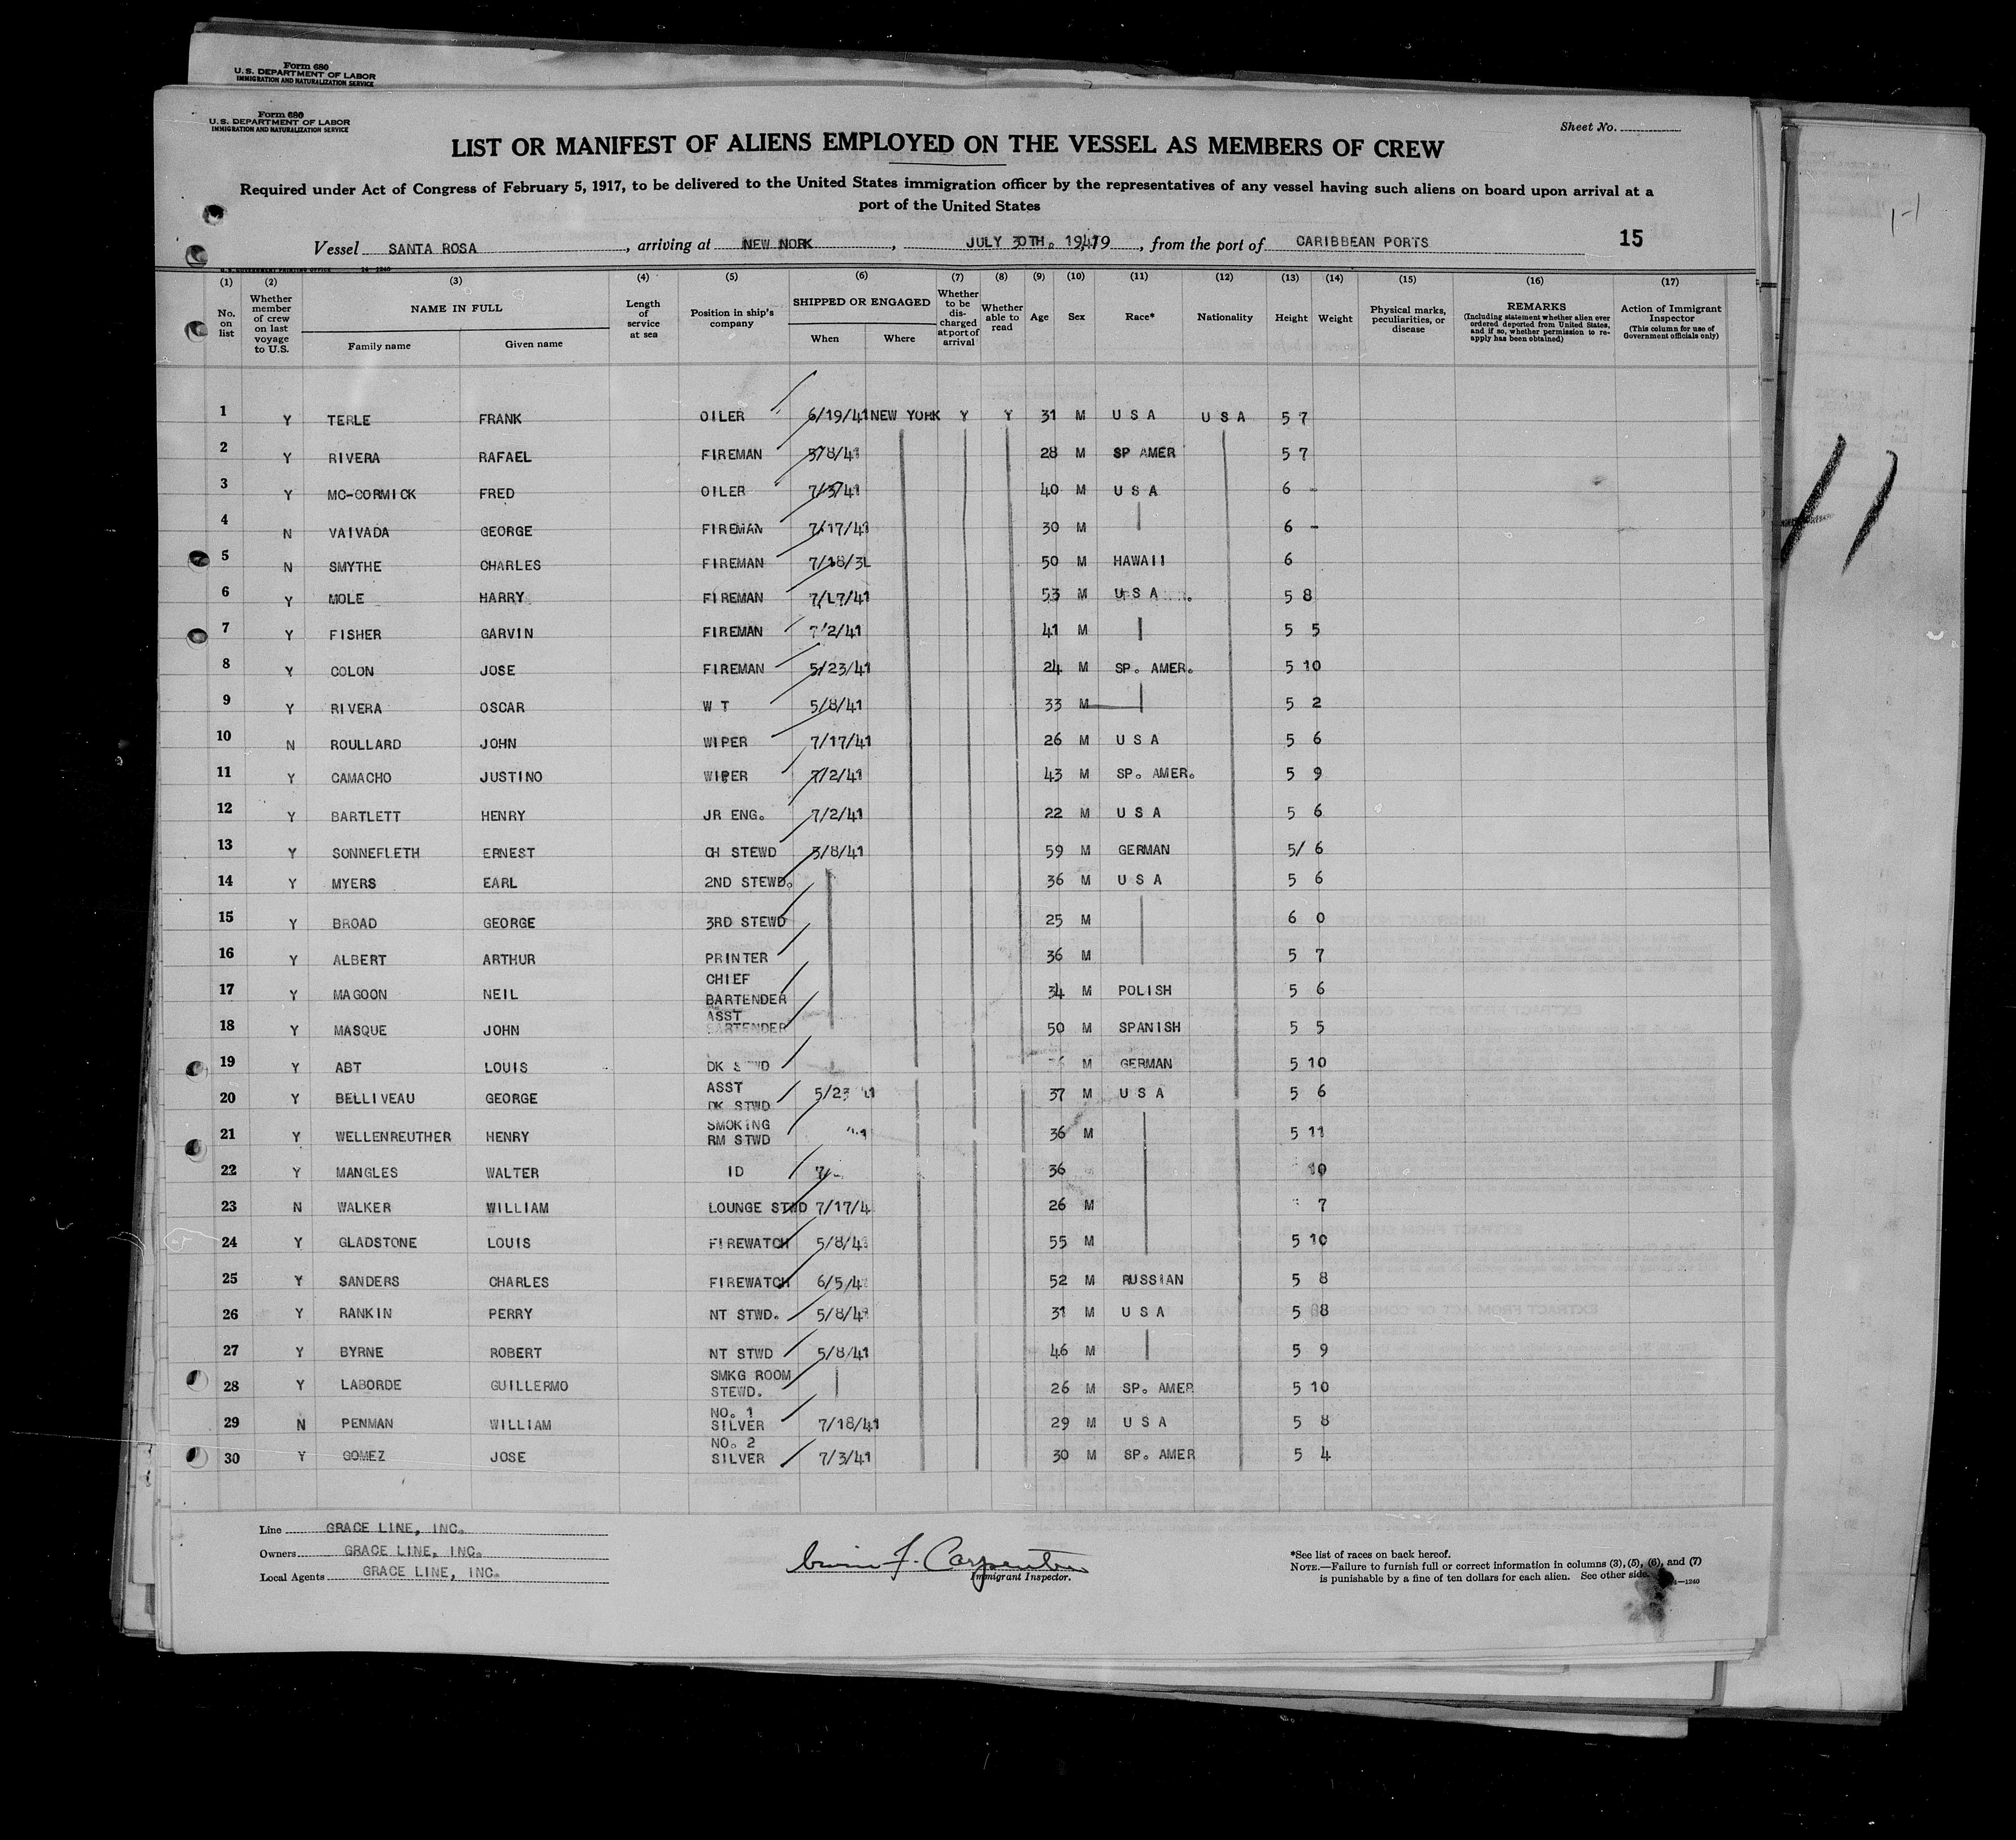 Form 680
U.S. DEPARTMENT OF LABOR
IMMIGRATION AND NATURALIZATION SERVICE
Form 680
U.S. DEPARTMENT OF LABOR
IMMIGRATION AND NATURALIZATION SERVICE
Sheet No.
LIST OR MANIFEST OF ALIENS EMPLOYED ON THE VESSEL AS MEMBERS OF CREW
Required under Act of Congress of February 5, 1917, to be delivered to the United States immigration officer by the representatives of any vessel having such aliens on board upon arrival at a
port of the United States
Vessel SANTA ROSA, arriving at NEW NORK, JULY 30TH. 1941, from the port of CARIBBEAN PORTS 15
(1) (2) (3) (4) (5) (6) (7) (8) (9) (10) (11) (12) (13) (14) (15) (16) (17)
No. on list
Whether member of crew on last voyage to U.S.
NAME IN FULL
Family name Given name
Length of service at sea
Position in ship's company
SHIPPED OR ENGAGED
When Where
Whether to be discharged at port of arrival
Whether able to read
Age Sex Race* Nationality Height Weight
Physical marks, peculiarities, or disease
REMARKS
(Including statement whether alien ever ordered deported from United States, and if so, whether permission to reapply has been obtained)
Action of Immigrant Inspector
(This column for use of Government officials only)
1 Y TERLE FRANK OILER 6/19/41 NEW YORK Y Y 31 M U S A U S A 5 7
2 Y RIVERA RAFAEL FIREMAN 5/8/41 28 M SP AMER 5 7
3 Y MC-CORMICK FRED OILER 7/3/41 40 M U S A 6 -
4 N VAIVADA GEORGE FIREMAN 7/17/41 30 M 6 -
5 N SMYTHE CHARLES FIREMAN 7/18/3L 50 M HAWAII 6
6 Y MOLE HARRY FIREMAN 7/17/41 53 M U S A 5 8
7 Y FISHER GARVIN FIREMAN 7/2/41 41 M 5 5
8 Y COLON JOSE FIREMAN 5/23/41 24 M SP. AMER. 5 10
9 Y RIVERA OSCAR W T 5/8/41 33 M 5 2
10 N ROULLARD JOHN WIPER 7/17/41 26 M U S A 5 6
11 Y CAMACHO JUSTINO WIPER 7/2/41 43 M SP. AMER. 5 9
12 Y BARTLETT HENRY JR ENG. 7/2/41 22 M U S A 5 6
13 Y SONNEFLETH ERNEST CH STEWD 5/8/41 59 M GERMAN 5/ 6
14 Y MYERS EARL 2ND STEWD. 36 M U S A 5 6
15 Y BROAD GEORGE 3RD STEWD 25 M 6 0
16 Y ALBERT ARTHUR PRINTER 36 M 5 7
17 Y MAGOON NEIL CHIEF BARTENDER 34 M POLISH 5 6
18 Y MASQUE JOHN ASST BARTENDER 50 M SPANISH 5 5
19 Y ABT LOUIS DK STWD M GERMAN 5 10
20 Y BELLIVEAU GEORGE ASST DK STWD 5/23 41 37 M U S A 5 6
21 Y WELLENREUTHER HENRY SMOKING RM STWD 36 M 5 11
22 Y MANGLES WALTER ID 7/ 36 10
23 N WALKER WILLIAM LOUNGE STWD 7/17/4 26 M 7
24 Y GLADSTONE LOUIS FIREWATCH 5/8/41 55 M 5 10
25 Y SANDERS CHARLES FIREWATCH 6/5/4 52 M RUSSIAN 5 8
26 Y RANKIN PERRY NT STWD. 5/8/41 31 M U S A 5 8
27 Y BYRNE ROBERT NT STWD 5/8/41 46 M 5 9
28 Y LABORDE GUILLERMO SMKG ROOM STEWD. 26 M SP. AMER 5 10
29 N PENMAN WILLIAM NO. 1 SILVER 7/18/41 29 M U S A 5 8
30 Y GOMEZ JOSE NO. 2 SILVER 7/3/41 30 M SP. AMER 5 4
Line GRACE LINE, INC.
Owners GRACE LINE, INC.
Local Agents GRACE LINE, INC.
F. Carpenter
Immigrant Inspector.
*See list of races on back hereof.
NOTE.—Failure to furnish full or correct information in columns (3), (5), (6), and (7)
is punishable by a fine of ten dollars for each alien. See other side.